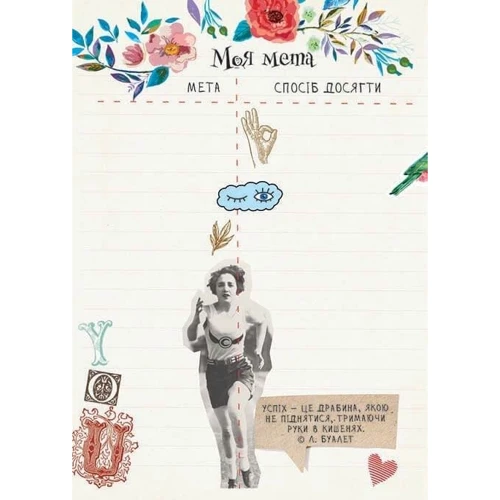 Моя мета
МЕТА
СПОСІБ ДОСЯГТИ
Y
O
U
УСПІХ – ЦЕ ДРАБИНА, ЯКОЮ
НЕ ПІДНЯТИСЯ, ТРИМАЮЧИ
РУКИ В КИШЕНЯХ.
© Л. БУАЛЕТ